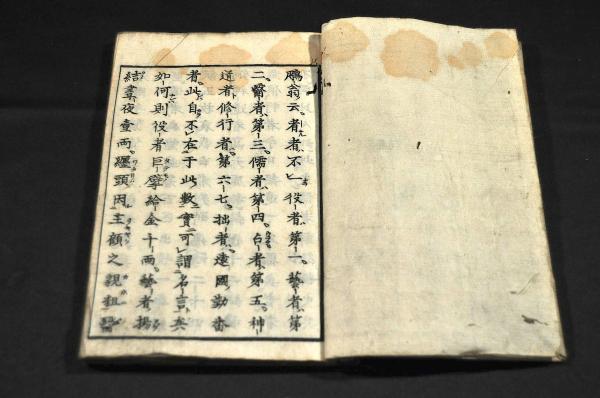 鵬翁云。者者不一。役者第一。藝者第
二。醫者第三。儒者第四。占者第五。神
道者。修行者。第六七。拙者。遠國勤番
者。此自不在于此數。實可謂名言矣
如何則役者巨擘給金千両。藝者揚
結晝夜壹両。纏頭因主顧之親粗醫